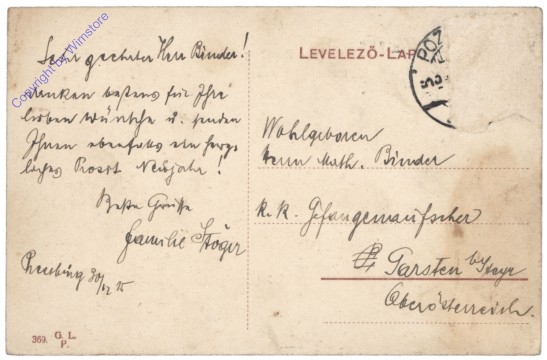 Sehr geehrter Herr Binder!
danken bestens für Ihre
lieben Wünsche u. senden
Ihnen ebenfalls ein herz-
liches Prosit Neujahr!
Beste Grüsse
Familie Stöger
Pressburg 30/12 15
369. G. L.
P.
LEVELEZŐ-LAP
POZ
Wohlgeboren
Herrn Math. Binder
k. k. Gefangenaufseher
Garsten b/Steyr
Oberösterreich.
Copyright by Wimstore